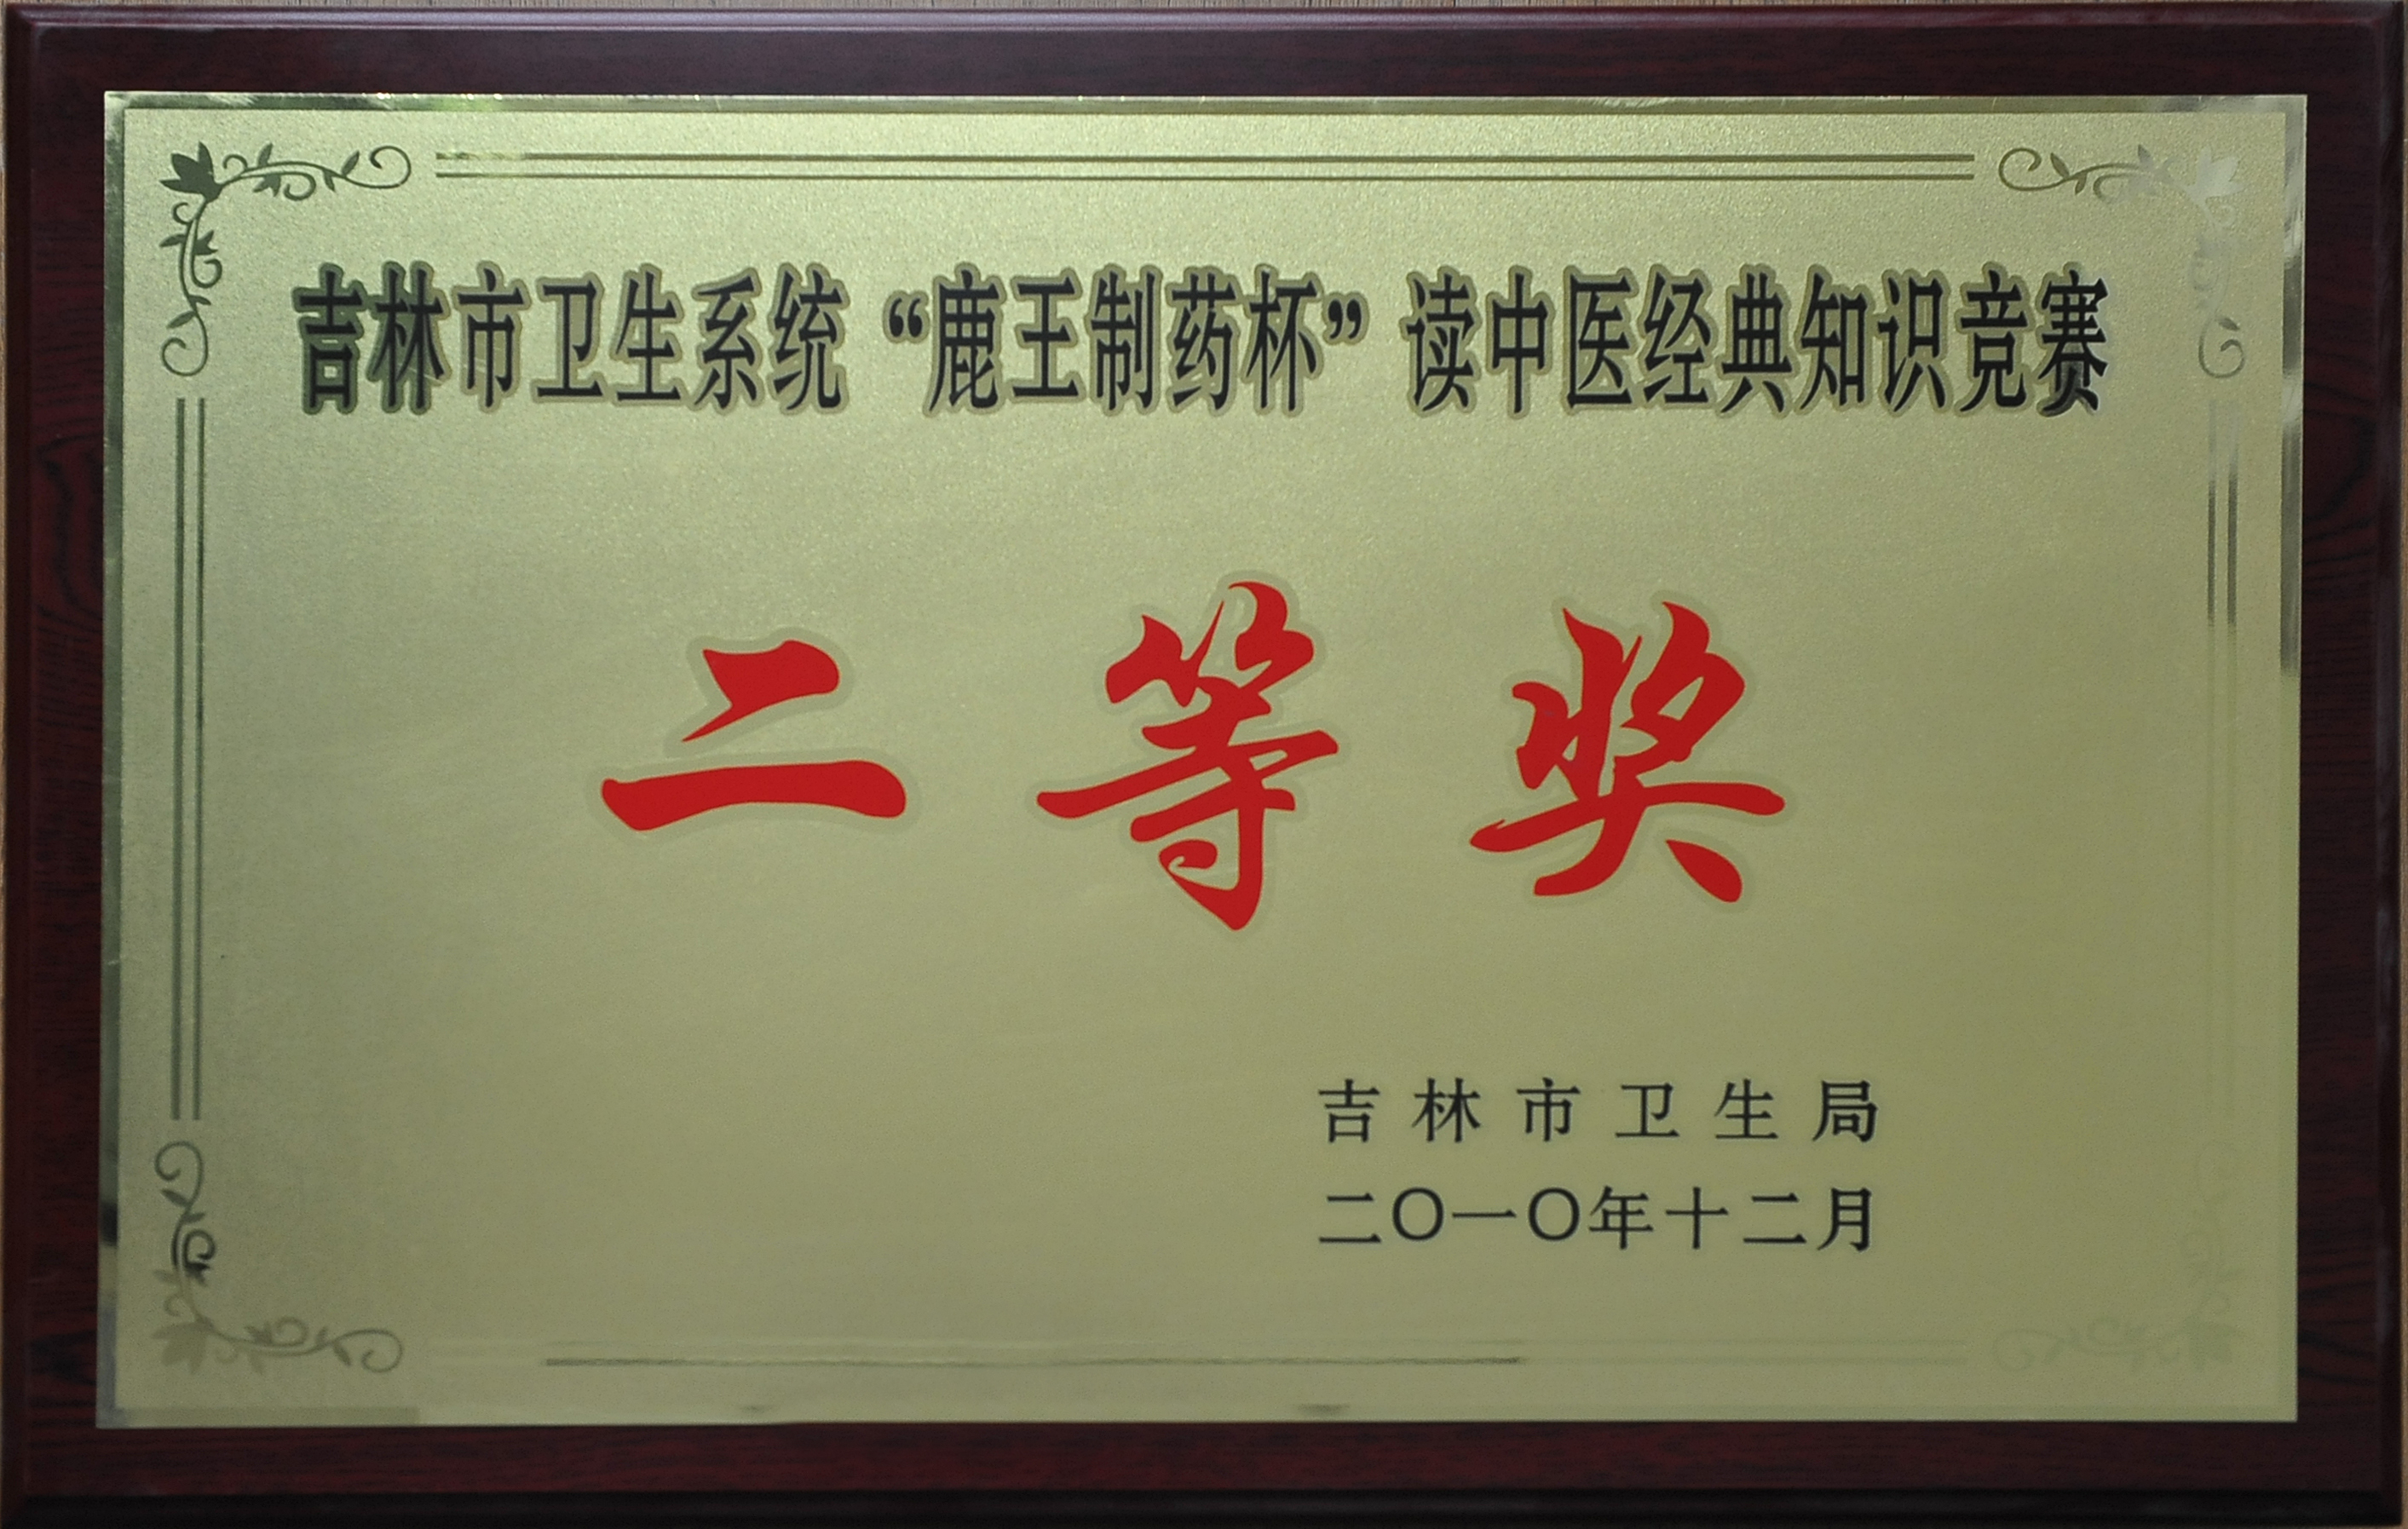 吉林市卫生系统“鹿王制药杯”读中医经典知识竞赛
二等奖
吉林市卫生局
二〇一〇年十二月